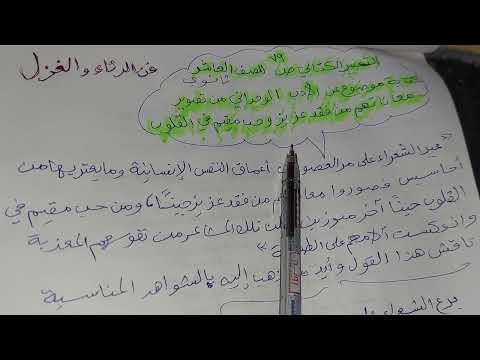 فن الرثاء والغزل
التعبير الكتابي ص ٧٩ للصف العاشر
ثانوي
موضوع عن الأدب الوجداني من تصوير
معاناتهم من فقد عزيز وحب مقيم في القلوب
الشعراء على مر العصور أعماق النفس الإنسانية وما يعتريها من
أحاسيس فصوروا من فقد عزيز حيناً ومن حب مقيم في
القلوب حيناً آخر تلك المشاعر من نفوسهم
وانعكست على
ناقش هذا القول وأيد ذهب إليه بالشواهد المناسبة
الشعراء